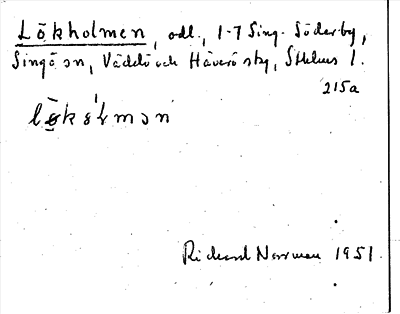 Lökholmen, odl., 1-7 Sing. Söderby,
Singö sn, Väddö och Häverö skg, Sthlms l.
215a
Richard Norrman 1951.